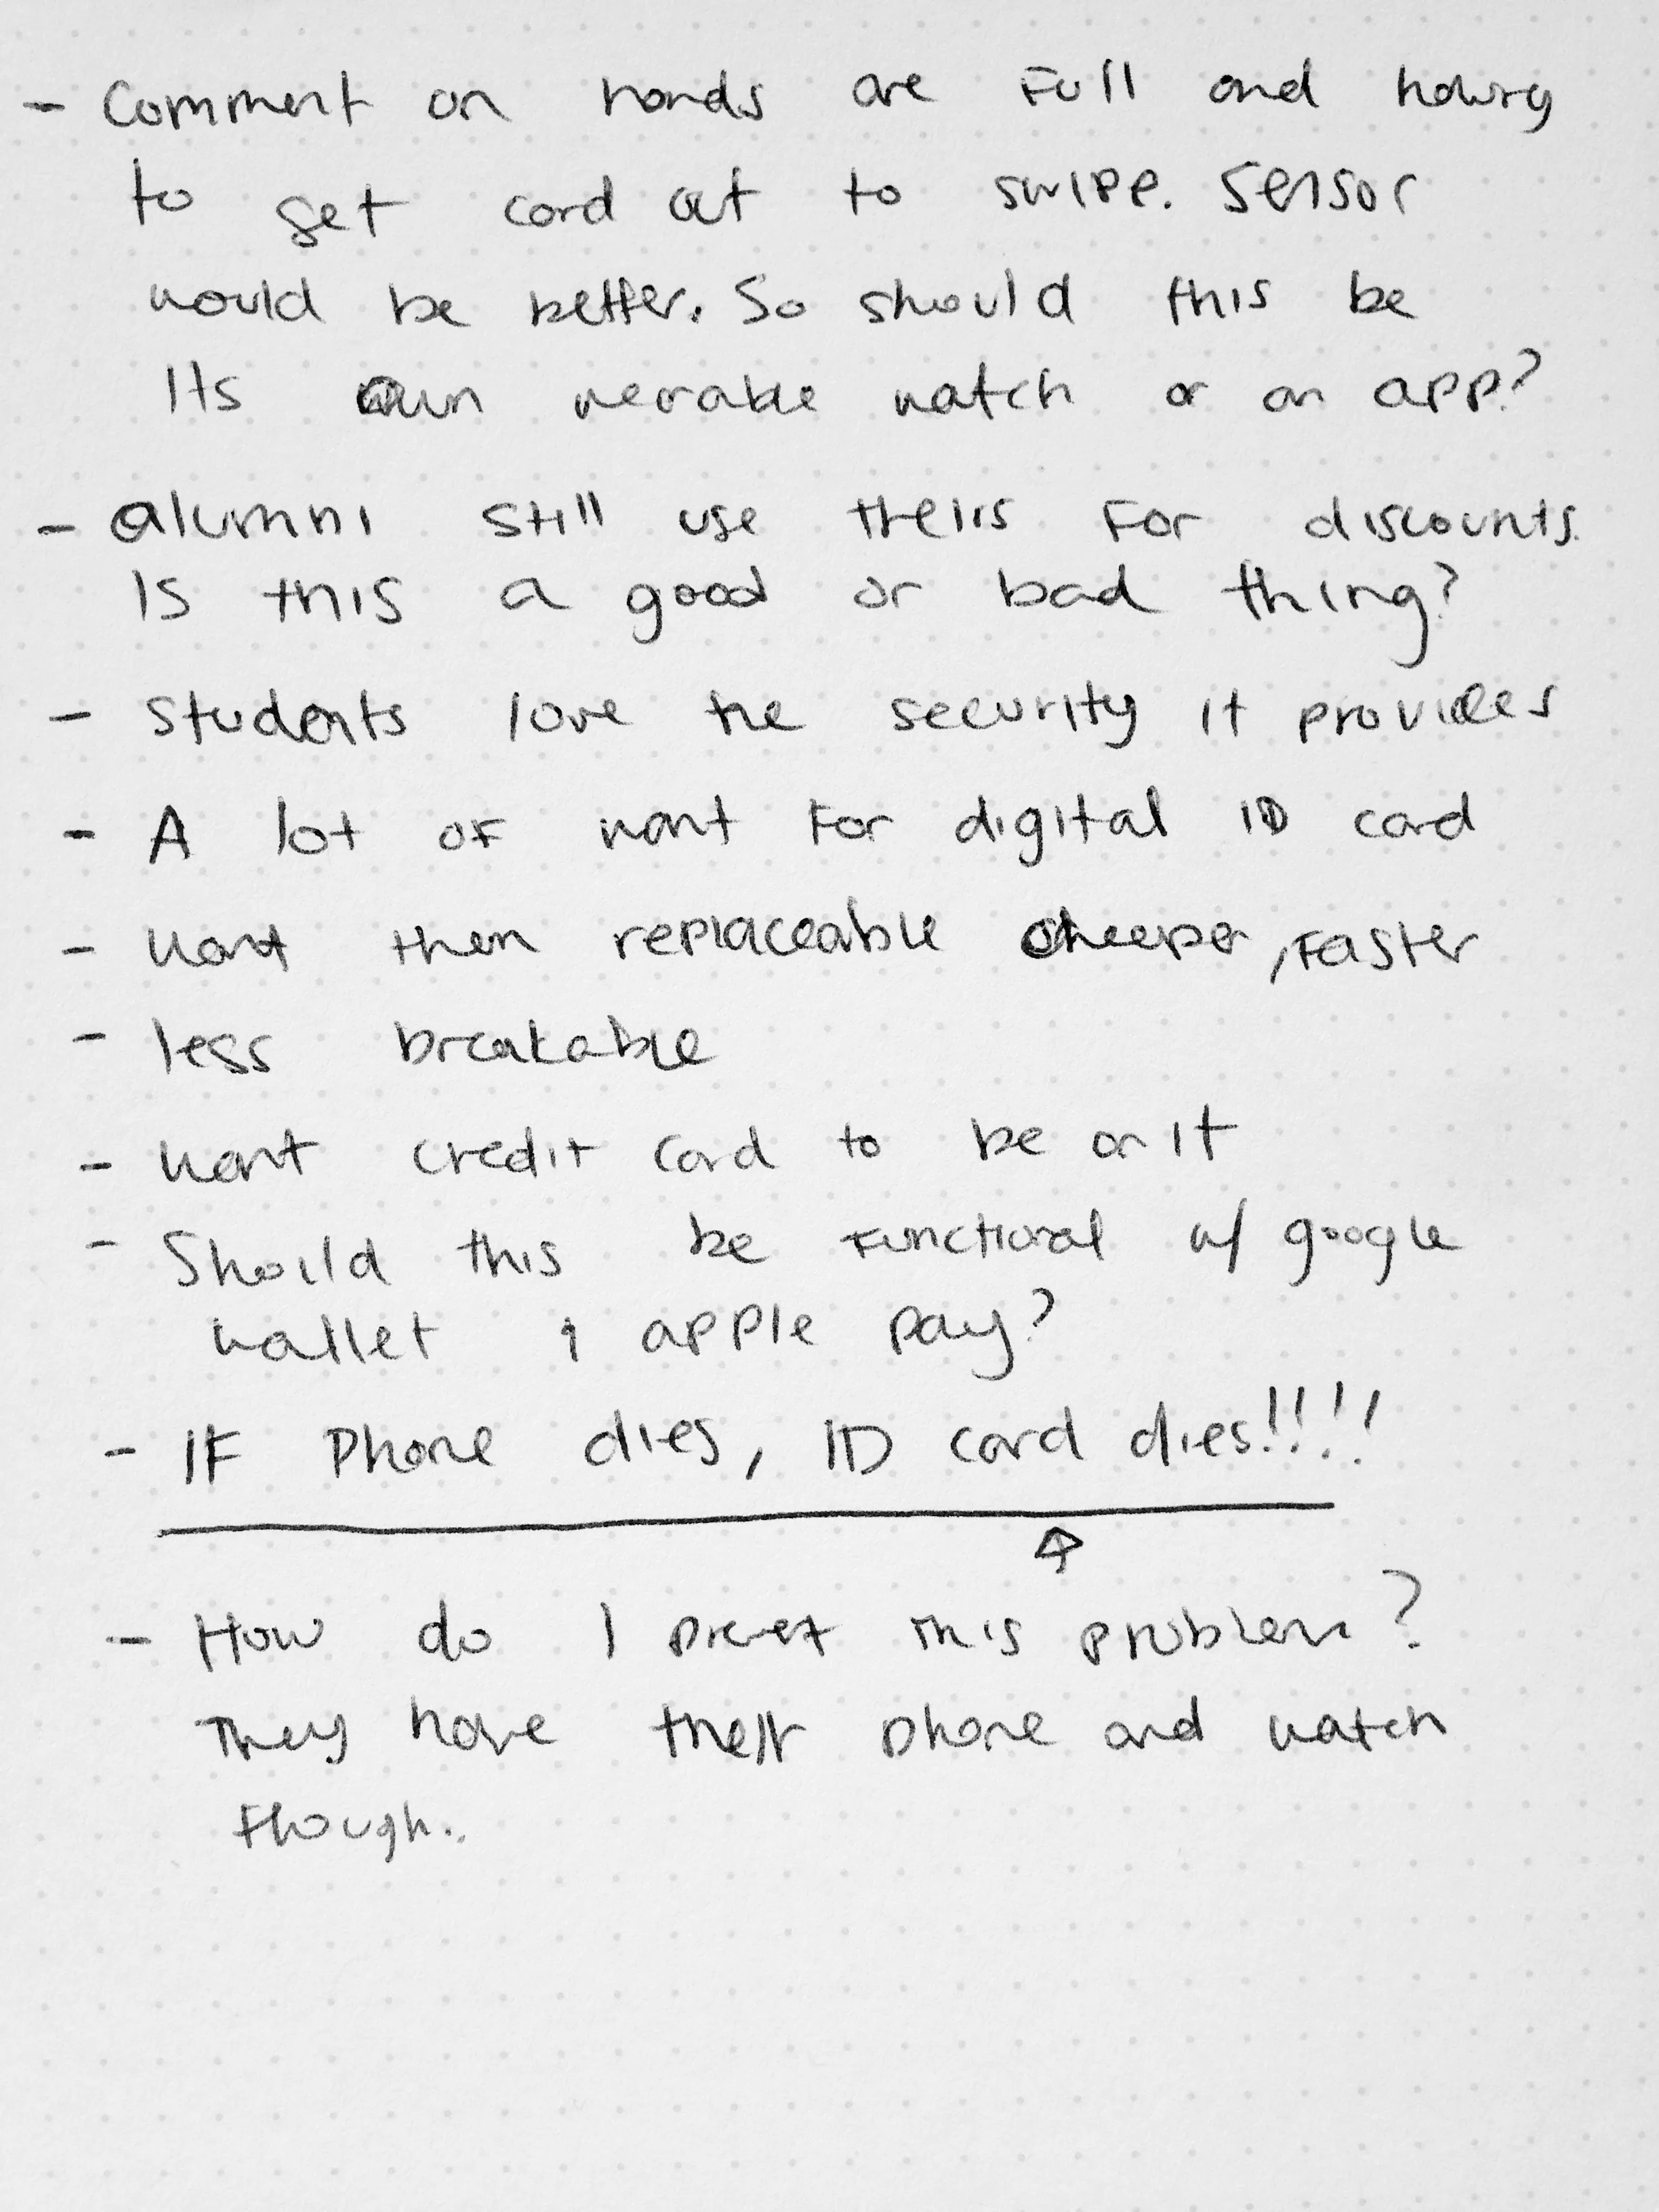 - Comment on hands are Full and having
to get card out to swipe. Sensor
would be better. So should this be
Its own werable watch or an app?
- alumni still use theirs For discounts.
Is this a good or bad thing?
- Students love the security it provides
- A lot of want For digital ID card
- Want them replaceable cheeper, Faster
- less breakable
- Want credit card to be on it
- Should this be Functional w/ google
wallet & apple pay?
- IF Phone dies, ID card dies!!!!
- How do I prevent this problem?
They have their phone and watch
though..